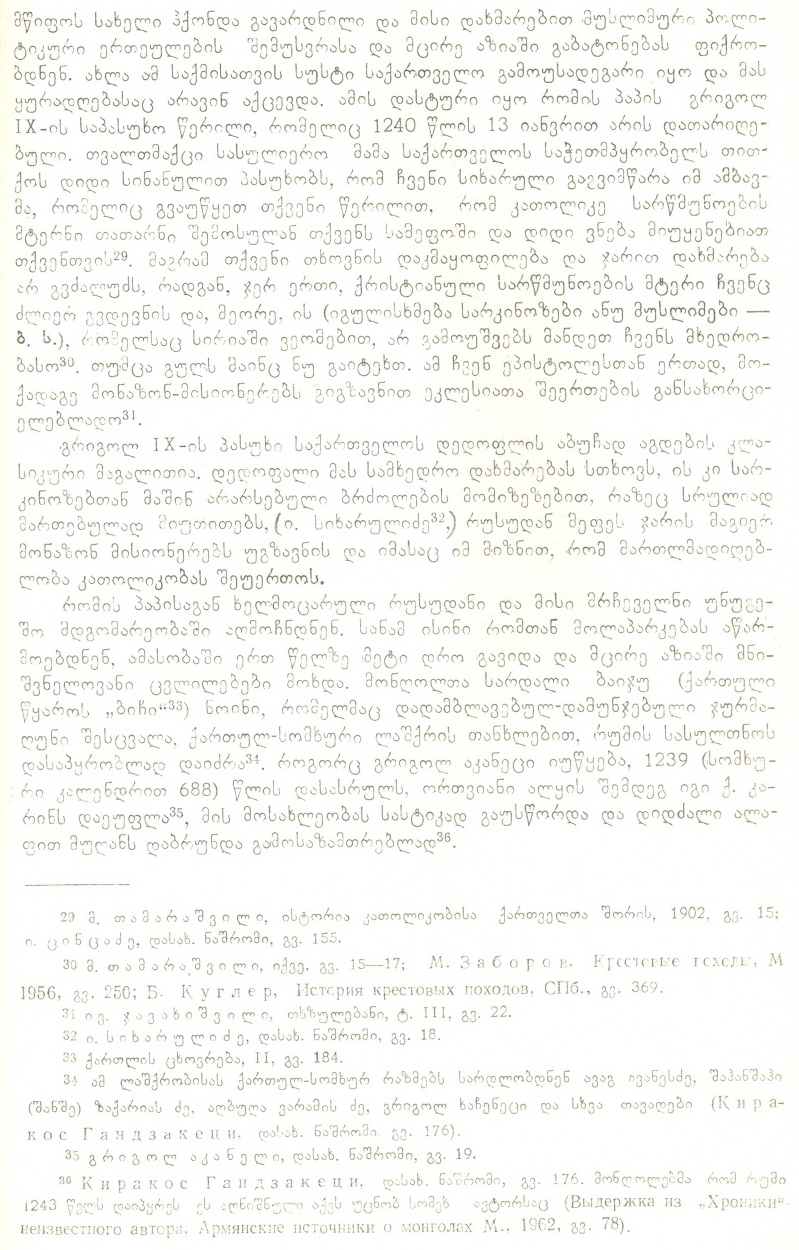 მწიფოს სახელი ჰქონდა გავარდნილი და მისი დახმარებით მუსლიმური პოლი-
ტიკური ერთეულების შემუსვრასა და მცირე აზიაში გაბატონებას ფიქრო-
ბდნენ. ახლა ამ საქმისათვის სუსტი საქართველო გამოუსადეგარი იყო და მას
ყურადღებასაც არავინ აქცევდა. ამის დასტური იყო რომის პაპის გრიგოლ
IX-ის საპასუხო წერილი, რომელიც 1240 წლის 13 იანვრით არის დათარიღე-
ბული. თვალთმაქცი სასულიერო მამა საქართველოს საჭეთმპყრობელს თით-
ქოს დიდი სინანულით პასუხობს, რომ ჩვენი სიხარული გაგვიმწარა იმ ამბავ-
მა, რომელიც გვაუწყეთ თქვენი წერილით, რომ კათოლიკე სარწმუნოების
მტერნი თათარნი შემოსულან თქვენს სამეფოში და დიდი ვნება მიუყენებიათ
თქვენთვის²⁹. მაგრამ თქვენი თხოვნის დაკმაყოფილება და ჯარით დახმარება
არ გვძალუძს, რადგან, ჯერ ერთი, ქრისტიანული სარწმუნოების მტერი ჩვენც
ძლიერ გვდევნის და, მეორე, ის (იგულისხმება სარკინოზები ანუ მუსლიმები —
ბ. ს.), რომელსაც სირიაში ვეომებით, არ გამოუშვებს მანდეთ ჩვენს მხედრო-
ბასო³⁰. თუმცა გულს მაინც ნუ გაიტეხთ. ამ ჩვენ ეპისტოლესთან ერთად, მო-
ქადაგე მონაზონ-მისიონერებს გიგზავნით ეკლესიათა შეერთების განსახორცი-
ელებლადო³¹.
გრიგოლ IX-ის პასუხი საქართველოს დედოფლის აბუჩად აგდების კლა-
სიკური მაგალითია. დედოფალი მას სამხედრო დახმარებას სთხოვს, ის კი სარ-
კინოზებთან მაშინ არარსებული ბრძოლების მომიზეზებით, რაზეც სრულიად
მართებულად მიუთითებს, (ი. სიხარულიძე³²,) რუსუდან მეფეს ჯარის მაგიერ
მონაზონ მისიონერებს უგზავნის და იმასაც იმ მიზნით, რომ მართლმადიდებ-
ლობა კათოლიკობას შეუერთოს.
რომის პაპისაგან ხელმოცარული რუსუდანი და მისი მრჩეველნი უნუგე-
შო მდგომარეობაში აღმოჩნდნენ. სანამ ისინი რომთან მოლაპარაკებას აწარ-
მოებდნენ, ამასობაში ერთ წელზე მეტი დრო გავიდა და მცირე აზიაში მნი-
შვნელოვანი ცვლილებები მოხდა. მონღოლთა სარდალი ბაიჯუ (ქართული
წყაროს „ბიჩი“³³) ნოინი, რომელმაც დადამბლავებულ-დამუნჯებული ჯურმა-
ღუნი შესცვალა, ქართულ-სომხური ლაშქრის თანხლებით, რუმის სასულთნოს
დასაპყრობლად დაიძრა³⁴. როგორც გრიგოლ აკანეცი იუწყება, 1239 (სომხუ-
რი კალენდრით 688) წლის დასასრულს, ორთვიანი ალყის შემდეგ იგი ქ. კა-
რინს დაეუფლა³⁵, მის მოსახლეობას სასტიკად გაუსწორდა და დიდძალი ალა-
ფით მუღანს დაბრუნდა გამოსაზამთრებლად³⁶.
29 მ. თამარაშვილი, ისტორია კათოლიკობისა ქართველთა შორის, 1902, გვ. 15;
ი. ცინცაძე, დასახ. ნაშრომი, გვ. 155.
30 მ. თამარაშვილი, იქვე, გვ. 15—17; М. Заборов, Крестовые походы, М
1956, გვ. 250; Б. Куглер, История крестовых походов, СПб., გვ. 369.
31 ივ. ჯავახიშვილი, თხზულებანი, ტ. III, გვ. 22.
32 ი. სიხარულიძე, დასახ. ნაშრომი, გვ. 18.
33 ქართლის ცხოვრება, II, გვ. 184.
34 ამ ლაშქრობისას ქართულ-სომხურ რაზმებს სარდლობდნენ ავაგ ივანესძე, შაჰანშაჰი
(შანშე) ზაქარიას ძე, აღბუღა ვარამის ძე, გრიგოლ ხაჩენეცი და სხვა თავადები (Кира-
кос Гандзакеци, დასახ. ნაშრომი. გვ. 176).
35 გრიგოლ აკანელი, დასახ. ნაშრომი, გვ. 19.
36 Киракос Гандзакеци, დასახ. ნაშრომი, გვ. 176. მონღოლებმა რომ რუმი
1243 წელს დაიპყრეს ეს აღნიშნული აქვს უცნობ სომეხ ავტორსაც (Выдержка из „Хроники“
неизвестного автора, Армянские источники о монголах М., 1962, გვ. 78).